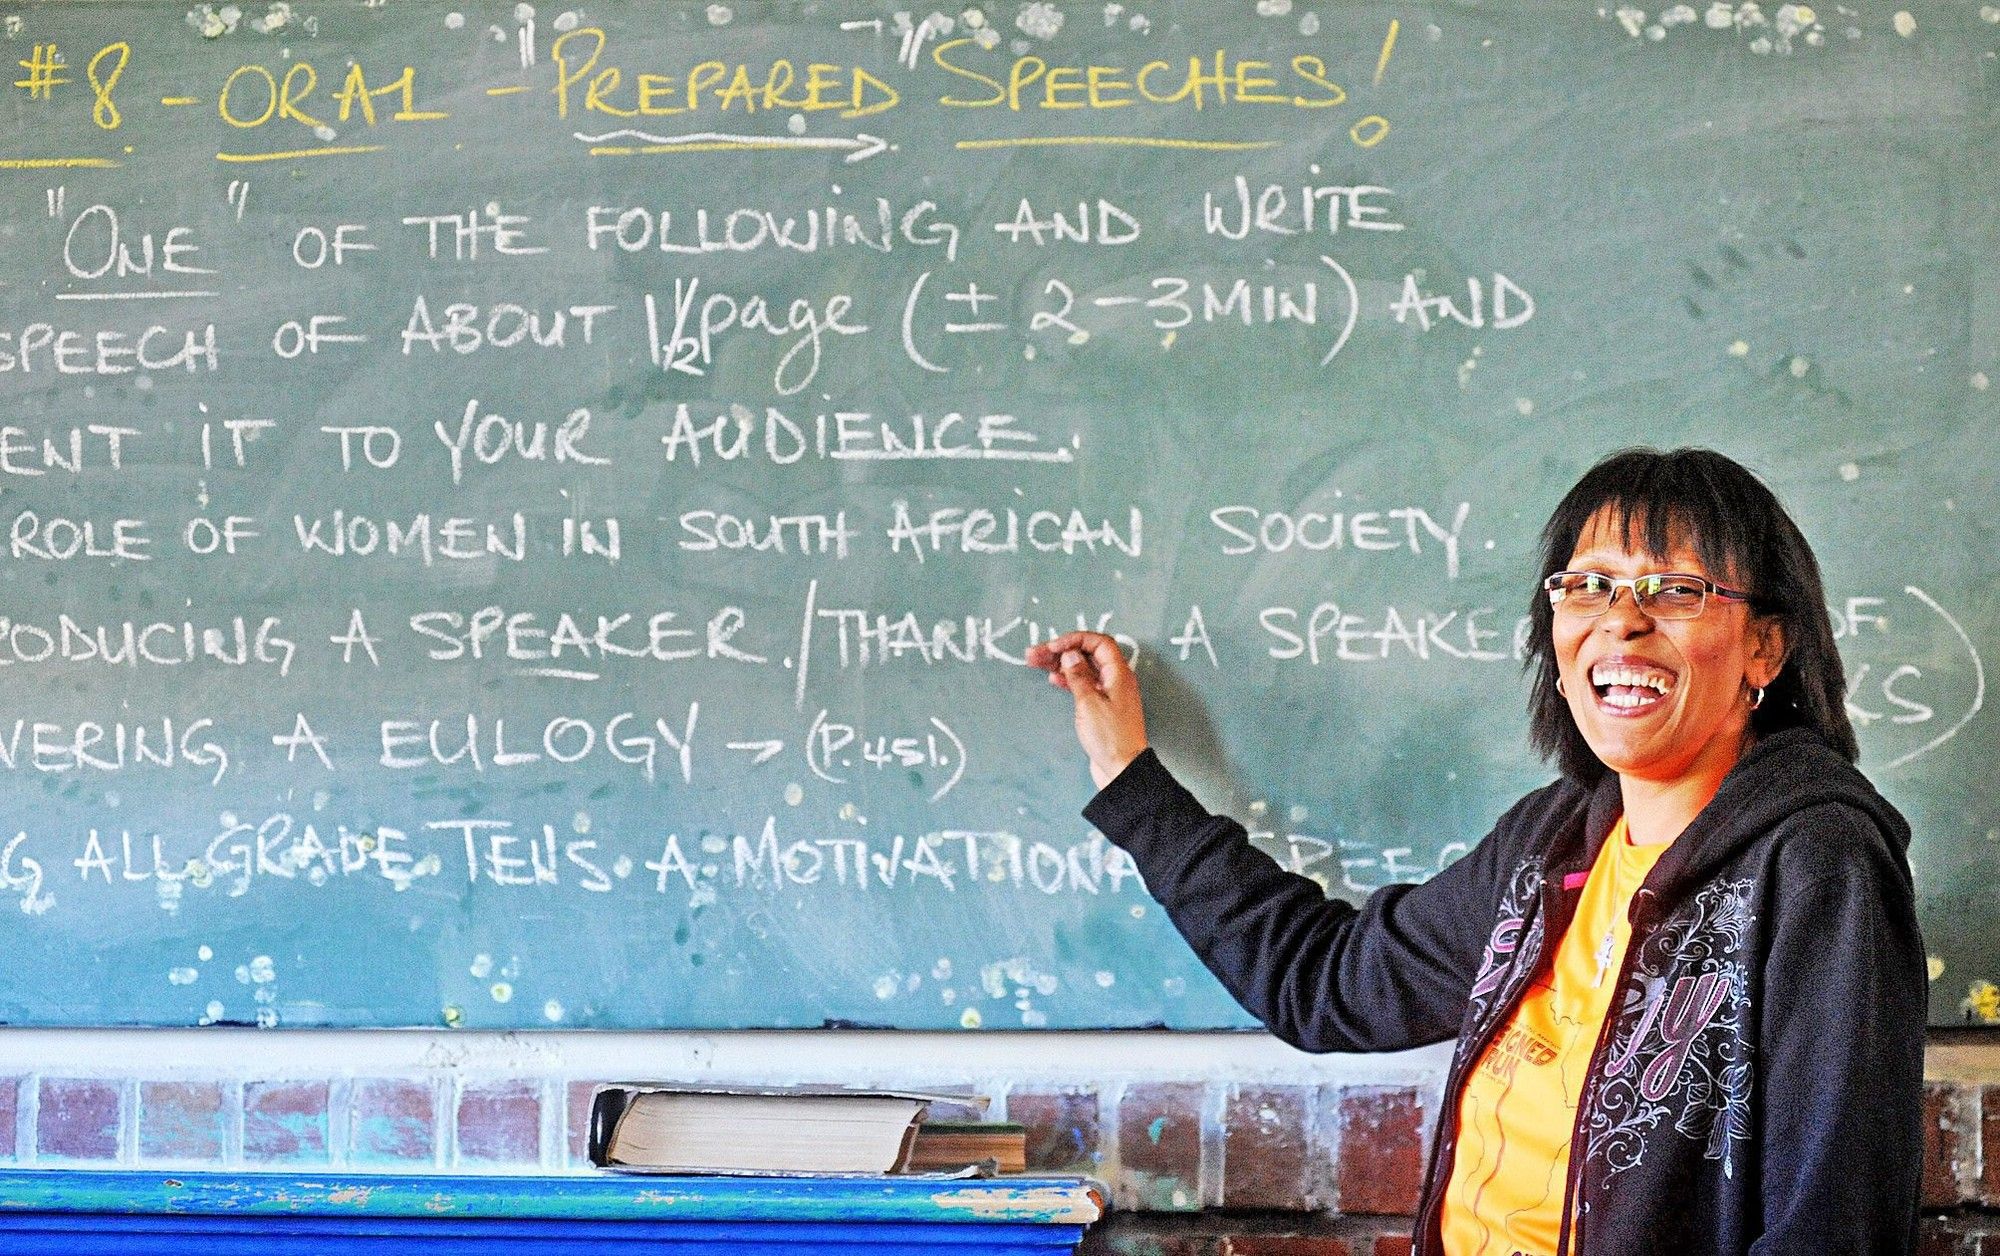 #8 - ORAL - "PREPARED" SPEECHES!
"ONE" OF THE FOLLOWING AND WRITE
SPEECH OF ABOUT 1 1/2 page (± 2-3 MIN) AND
ENT IT TO YOUR AUDIENCE.
ROLE OF WOMEN IN SOUTH AFRICAN SOCIETY.
ODUCING A SPEAKER./THANKING A SPEAKER OF
KS)
VERING A EULOGY → (P.451.)
G ALL GRADE TENS A MOTIVATIONA SPEEC
SIGNED
RUN